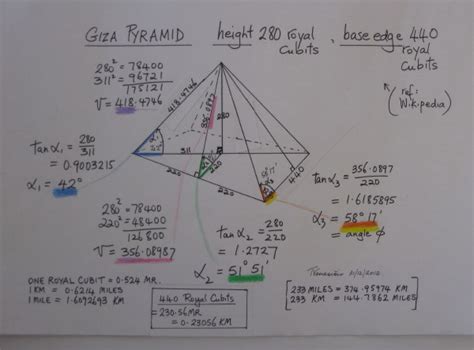 GIZA PYRAMID height 280 royal cubits, base edge 440 royal cubits
(ref: Wikipedia)
280² = 78400
311² = 96721
175121
√ = 418.4746
418.4746
356.0897
280
311
220
220
440
tan α₁ = 280/311
= 0.9003215
α₁ = 42°
280² = 78400
220² = 48400
126800
√ = 356.08987
tan α₂ = 280/220
= 1.2727
α₂ = 51° 51'
tan α₃ = 356.0897/220
= 1.6185895
α₃ = 58° 17'
= angle φ
ONE ROYAL CUBIT = 0.524 MR.
1 KM = 0.6214 MILES
1 MILE = 1.6092693 KM
440 Royal Cubits
= 230.56 MR
= 0.23056 KM
233 MILES = 374.95974 KM
233 KM = 144.7862 MILES